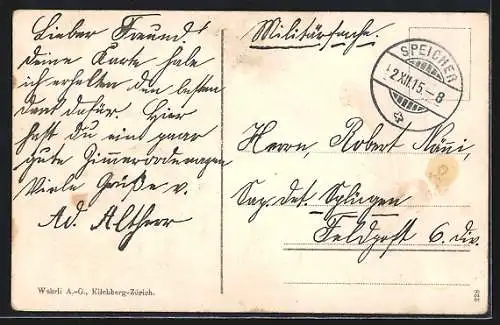 Lieber Freund!
Deine Karte habe
ich erhalten den besten
Dank dafür. Hier
hast du ein paar
gute
Viele Grüße v.
Ad. Altherr
Militärsache.
SPEICHER
2.XII.15.-8
Herrn, Robert Näni,
Sap. Det. Splügen
Feldpost 6. Div.
Wehrli A.-G., Kilchberg-Zürich.